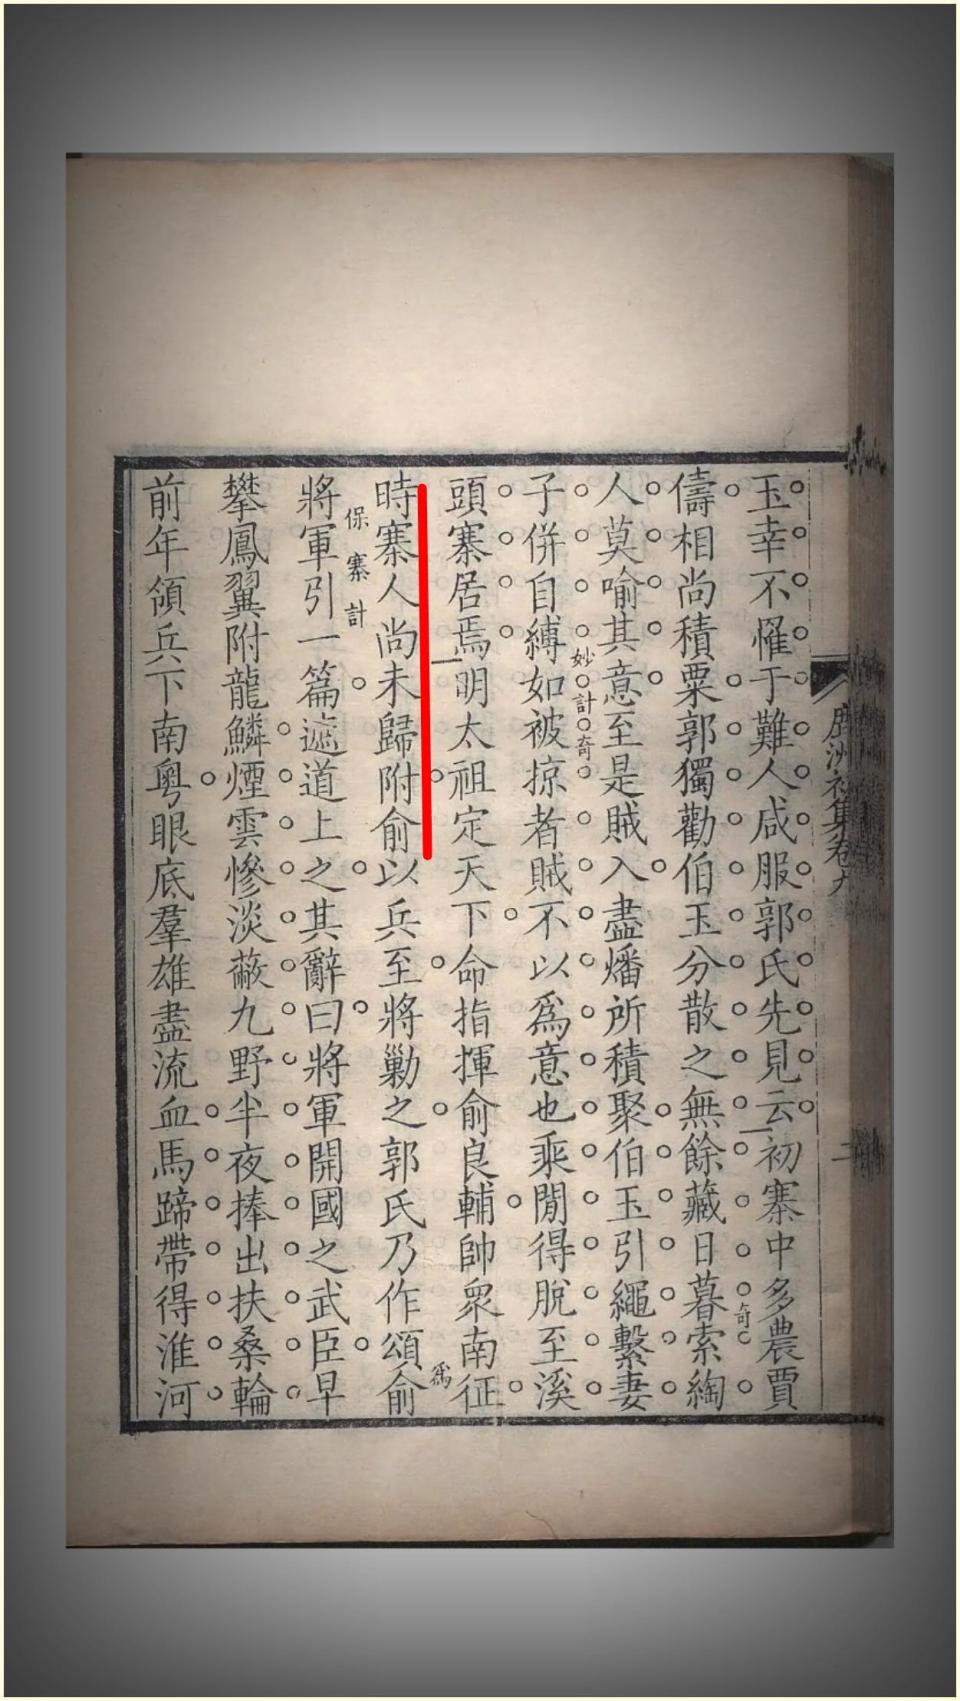 鹿洲初集卷九
二
玉幸不罹于難人咸服郭氏先見云初寨中多農賈
儔相尚積粟郭獨勸伯玉分散之無餘藏日暮索綯
奇
人莫喻其意至是賊入盡燔所積聚伯玉引繩繫妻
子併自縛如被掠者賊不以為意也乘閒得脫至溪
妙計奇
頭寨居焉明太祖定天下命指揮俞良輔帥眾南征
時寨人尚未歸附俞以兵至將勦之郭氏乃作頌俞
為
將軍引一篇遮道上之其辭曰將軍開國之武臣早
保寨計
攀鳳翼附龍鱗煙雲慘淡蔽九野半夜捧出扶桑輪
前年領兵下南粵眼底羣雄盡流血馬蹄帶得淮河